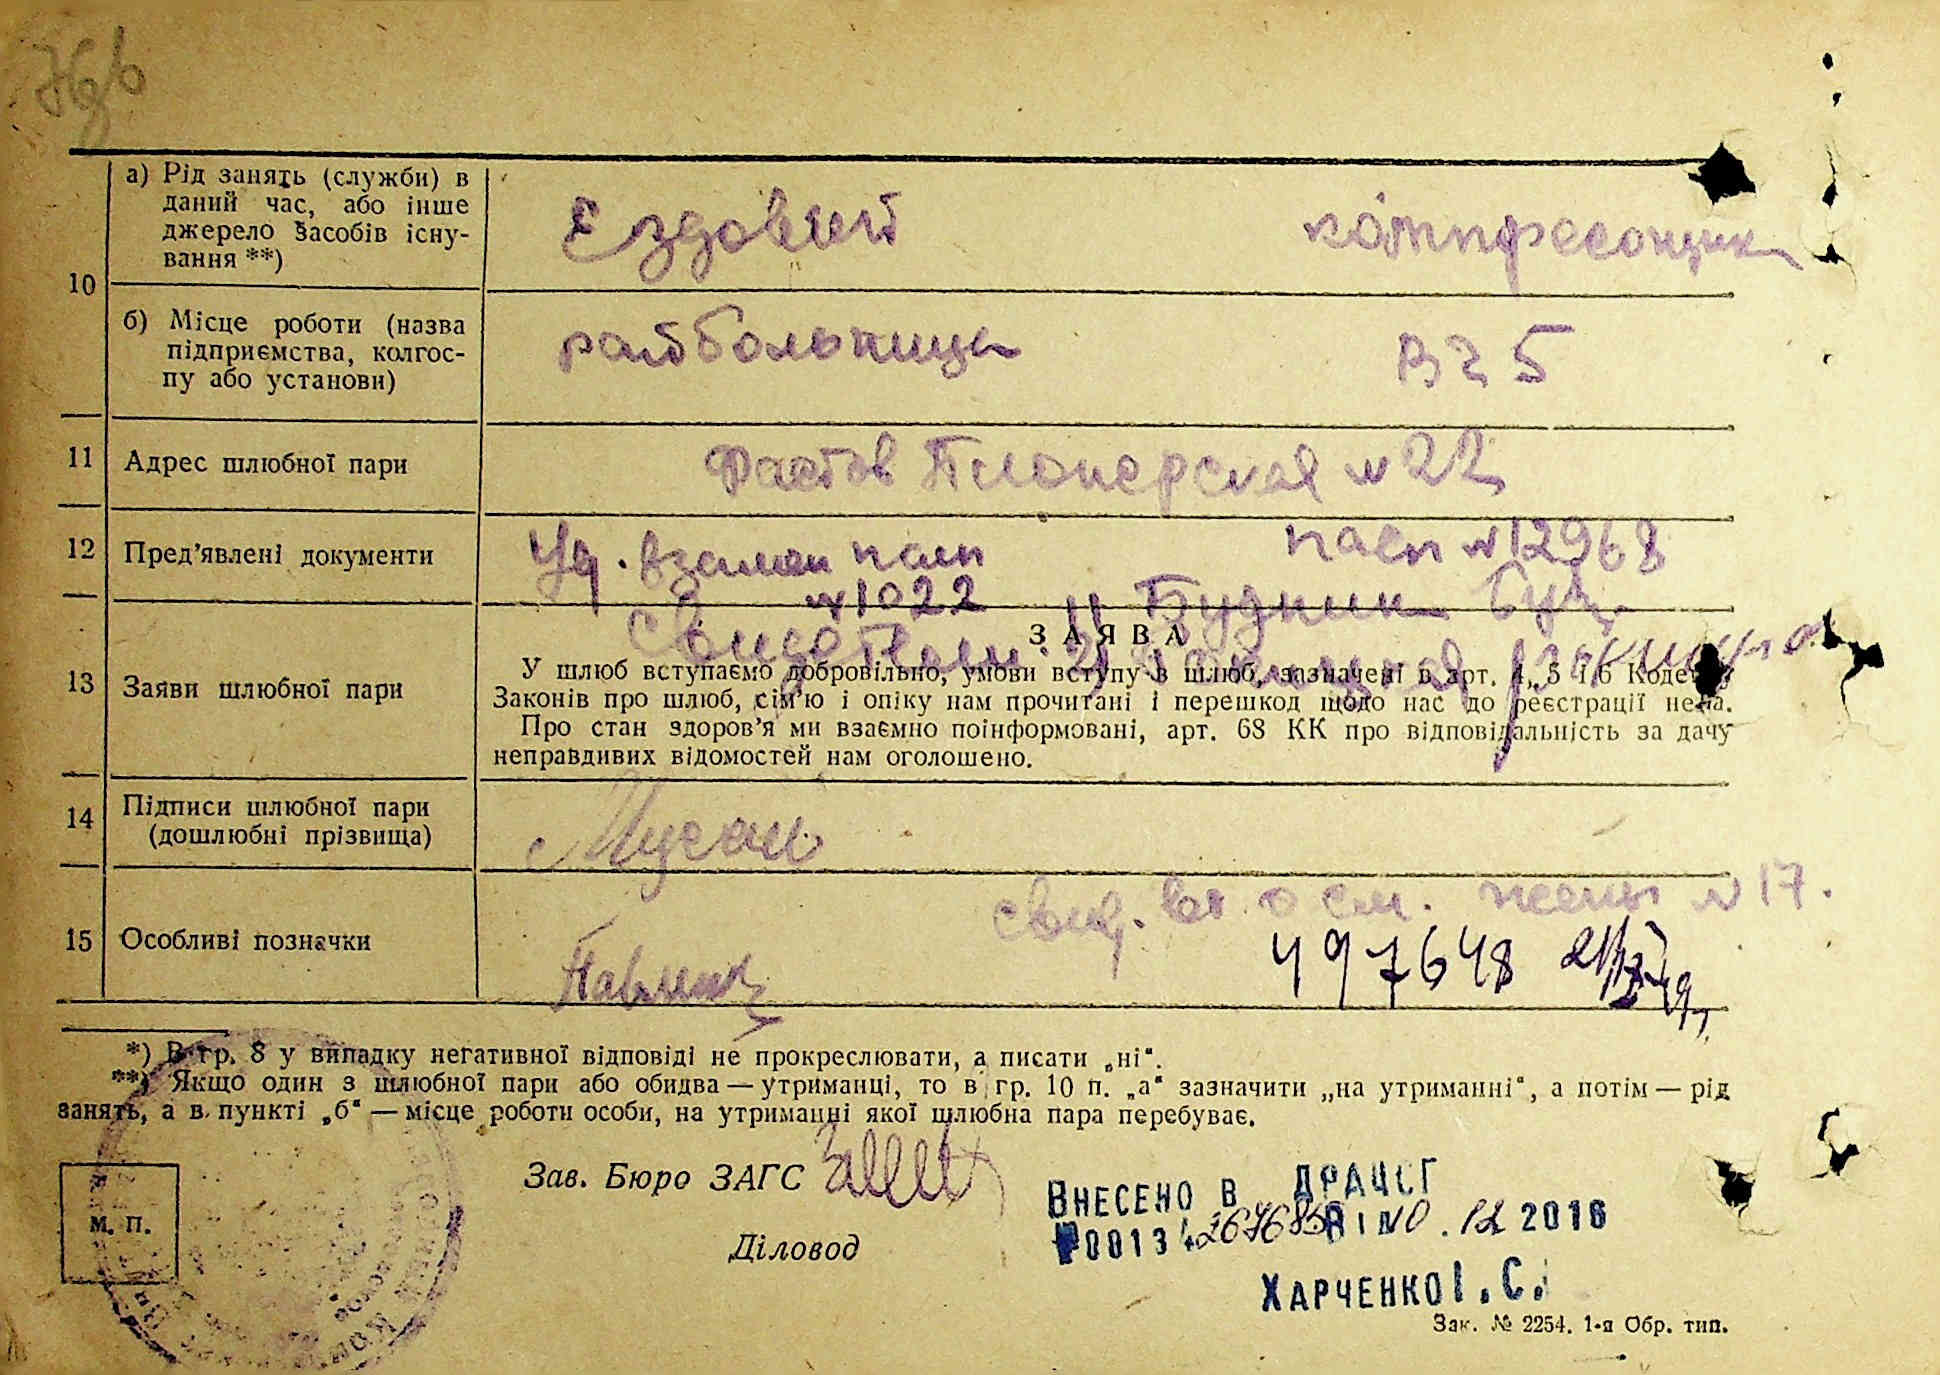 а) Рід занять (служби) в
даний час, або інше
джерело засобів існу-
вання **)
Ездовый
компресонщик
10
б) Місце роботи (назва
підприємства, колгос-
пу або установи)
райбольница
ВЧ 5
11
Адрес шлюбної пари
Фастов Пионерская № 22
12
Пред'явлені документи
Уд. взамен пасп
№ 1022
пасп № 12968
Будник
ЗАЯВА
13
Заяви шлюбної пари
У шлюб вступаємо добровільно, умови вступу в шлюб, зазначені в арт. 4, 5 і 6 Кодексу
Законів про шлюб, сім'ю і опіку нам прочитані і перешкод щодо нас до реєстрації нема.
Про стан здоров'я ми взаємно поінформовані, арт. 68 КК про відповідальність за дачу
неправдивих відомостей нам оголошено.
14
Підписи шлюбної пари
(дошлюбні прізвища)
15
Особливі позначки
свид. во о см. жены № 17.
497648
*) В гр. 8 у випадку негативної відповіді не прокреслювати, а писати „ні“.
**) Якщо один з шлюбної пари або обидва — утриманці, то в гр. 10 п. „а“ зазначити „на утриманні“, а потім — рід
занять, а в пункті „б“ — місце роботи особи, на утриманні якої шлюбна пара перебуває.
Зав. Бюро ЗАГС
М. П.
Діловод
ВНЕСЕНО В ДРАЦСГ
2016
ХАРЧЕНКО І. С.
Зак. № 2254. 1-я Обр. тип.